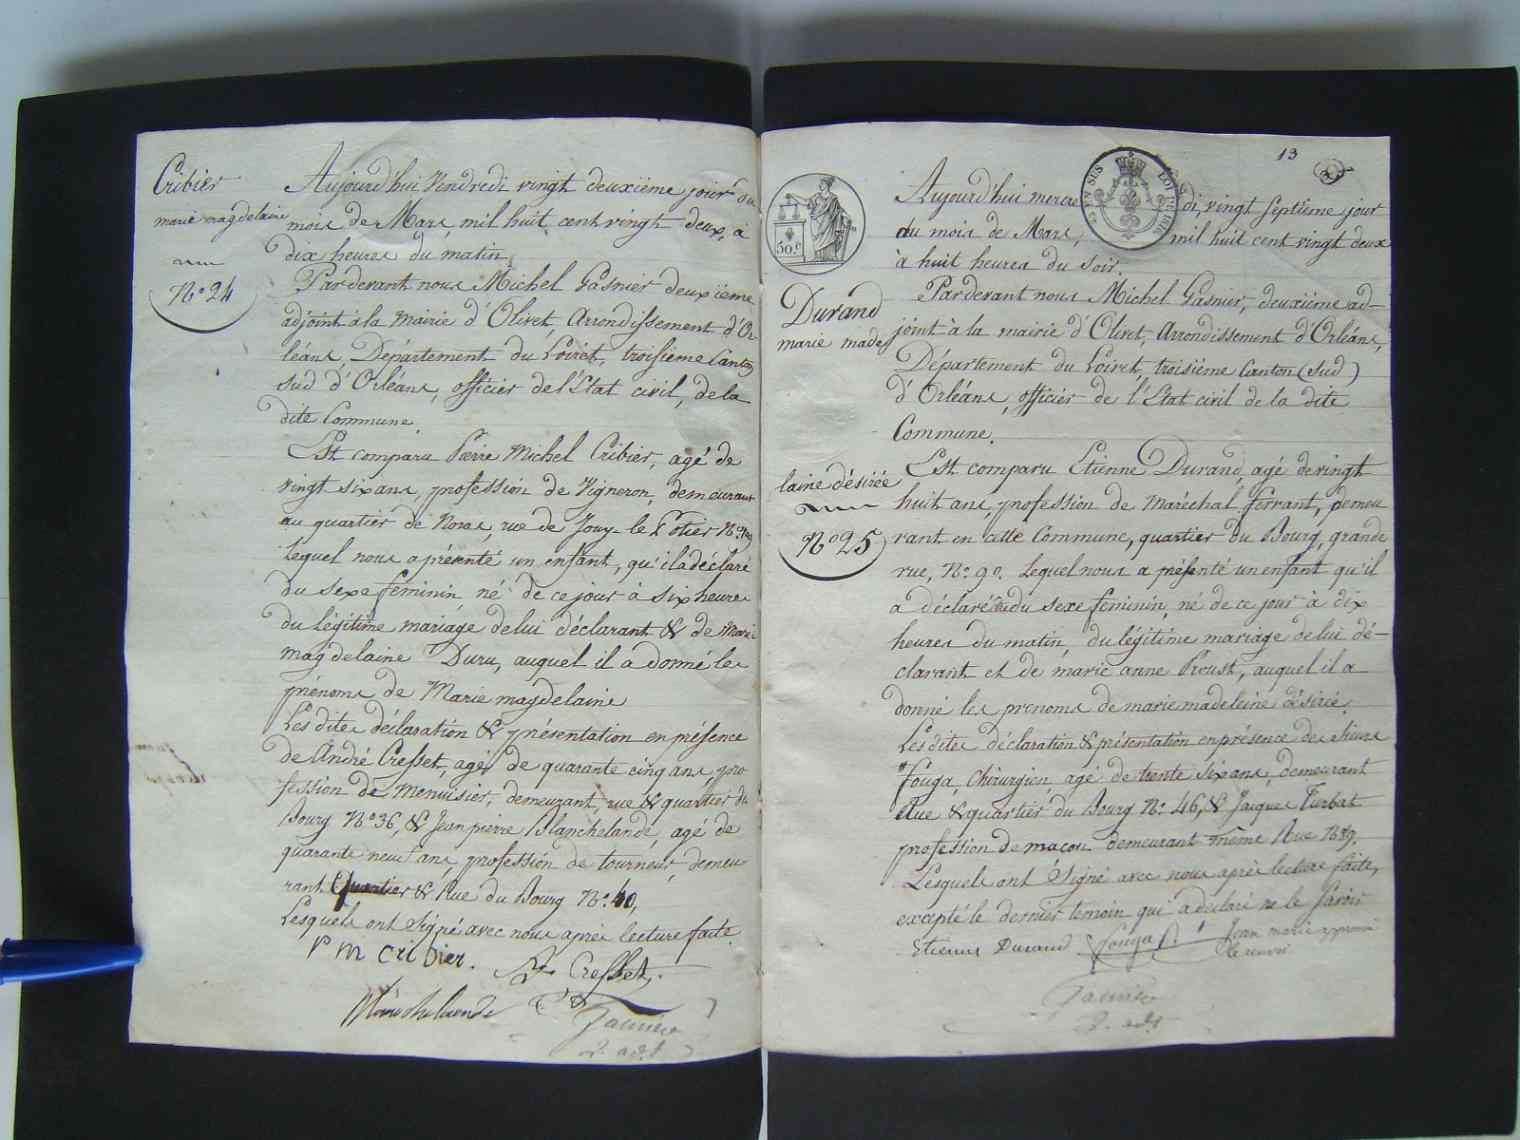 Cribier
marie magdelaine
N.o 24
Aujourd'hui vendredi vingt deuxième jour du
mois de Mars mil huit cent vingt deux, à
dix heures du matin,
Pardevant nous Michel Gasnier deuxième
adjoint à la mairie d'Olivet, Arrondissement d'Or-
léans, Département du Loiret, troisième Canton
sud d'Orléans, officier de l'état civil, de la
dite Commune.
Est comparu Pierre Michel Cribier, agé de
vingt six ans, profession de Vigneron, demeurant
au quartier de Noras, rue de Jouy-le Potier N.o
lequel nous a présenté un enfant, qu'il a déclaré
du sexe feminin né de ce jour à six heures
du légitime mariage de lui déclarant & de Marie
magdelaine Duru, auquel il a donné les
prénoms de Marie magdelaine
Les dites déclaration & présentation en présence
de André Cresset, agé de quarante cinq ans, pro
fession de Menuisier, demeurant, rue & quartier du
Bourg N.o 36, & Jean pierre Blanchelande, agé de
quarante neuf ans, profession de tourneur, demeu
rant Quartier & Rue du Bourg N.o 40,
Lesquels ont signé avec nous après lecture faite.
P M cribier. Cresset,
Blanchelande
Gasnier
2. adj.t
13
50.c
Durand
marie made
laine désirée
N.o 25
Aujourd'hui mercredi, vingt septième jour
du mois de Mars, mil huit cent vingt deux
à huit heures du soir.
Pardevant nous Michel Gasnier, deuxième ad-
joint à la mairie d'Olivet, Arrondissement d'Orléans,
Département du Loiret, troisième Canton (sud)
d'Orléans, officier de l'état civil de la dite
Commune.
Est comparu Etienne Durand, agé de vingt
huit ans, profession de Maréchal ferrant, demeu
rant en cette Commune, quartier du Bourg, grande
rue, N.o 90. Lequel nous a présenté un enfant qu'il
a déclaré du sexe feminin, né de ce jour à dix
heures du matin, du légitime mariage de lui dé-
clarant et de marie anne Proust, auquel il a
donné les prenoms de marie madeleine désirée.
Les dites déclaration & présentation en présence des Sieurs
Fouga, Chirurgien, agé de trente six ans, demeurant
Rue & quartier du Bourg N.o 46, & Jacques Turbat
profession de maçon demeurant même Rue N.o 89.
Lesquels ont signé avec nous après lecture faite,
excepté le dernier temoin qui a declaré ne le savoir
Etienne Durand Fouga
Gasnier
2. adj.t